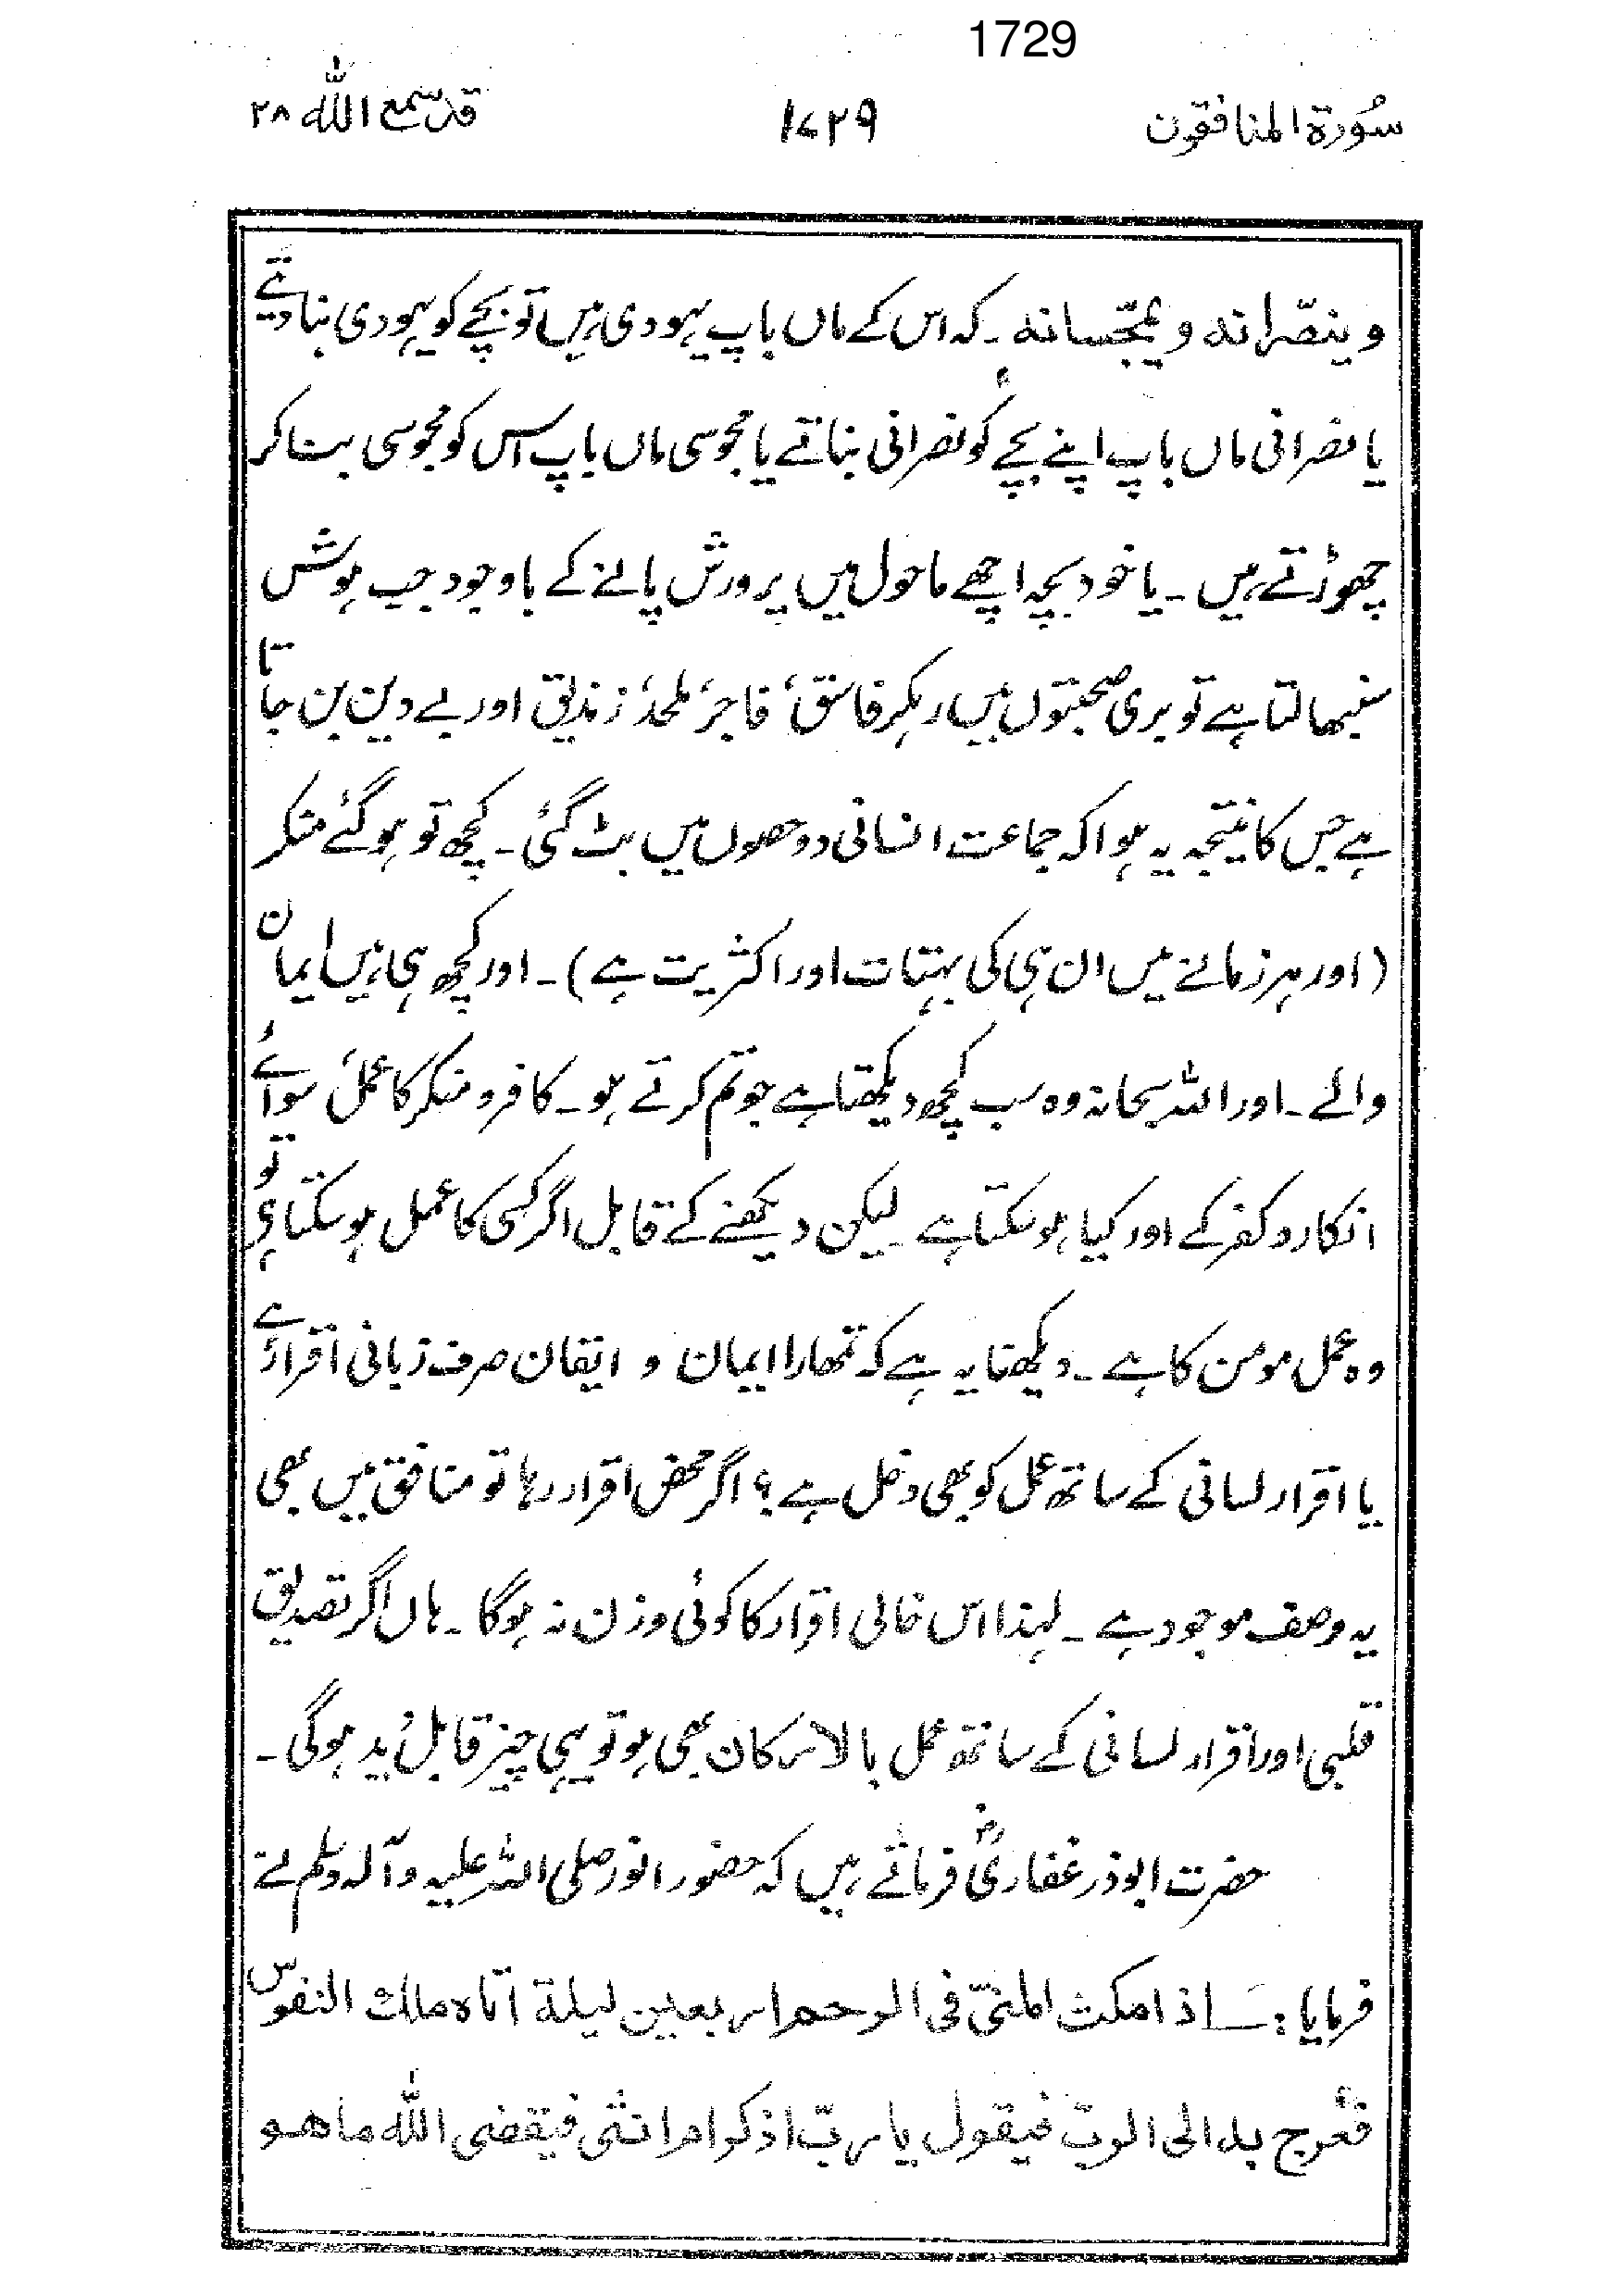 1729
سُورة المنافقون ۱۷۲۹ قد سمع اللہ ۲۸
وینصّرانه ویمجّسانه ۔ کہ اس کے ماں باپ یہودی ہیں تو بچے کو یہودی بنادیتے
یا نصرانی ماں باپ اپنے بچے کو نصرانی بناتے یا مجوسی ماں باپ اس کو مجوسی بنا کر
چھوڑتے ہیں ۔ یا خود بچہ اچھے ماحول میں پرورش پانے کے باوجود جب ہوش
سنبھالتا ہے تو بری صحبتوں میں رہکر فاسق، فاجر، ملحد، زندیق اور بے دین بن جاتا
ہے جس کا نتیجہ یہ ہوا کہ جماعت انسانی دو حصوں میں بٹ گئی ۔ کچھ تو ہو گئے منکر
(اور ہر زمانے میں ان ہی کی بہتات اور اکثریت ہے) ۔ اور کچھ ہی ہیں ایمان
والے ۔ اور اللہ سبحانہ وہ سب کچھ دیکھتا ہے جو تم کرتے ہو ۔ کافر و منکر کا عمل، سوائے
انکار و کفر کے اور کیا ہو سکتا ہے ۔ لیکن دیکھنے کے قابل اگر کسی کا عمل ہو سکتا ہی تو
وہ عمل مومن کا ہے ۔ دیکھنا یہ ہے کہ تمھارا ایمان و ایقان صرف زبانی اقرار ہے
یا اقرار لسانی کے ساتھ عمل کو بھی دخل ہے ؟ اگر محض اقرار رہا تو منافق میں بھی
یہ وصف موجود ہے ۔ لہذا اس خالی اقرار کا کوئی وزن نہ ہوگا ۔ ہاں اگر تصدیق
قلبی اور اقرار لسانی کے ساتھ عمل بالارکان بھی ہو تو یہی چیز قابلِ دید ہوگی ۔
حضرت ابوذر غفاریؓ فرماتے ہیں کہ حضور انور صلی اللہ علیہ وآلہ وسلم نے
فرمایا :۔ اذا مکث المنیّ فی الرحم اربعین لیلة اتاه ملك النفوس
فعرج به الی الربّ فیقول یا ربّ اذکر ام انثی فیقضی اللہ ما هو